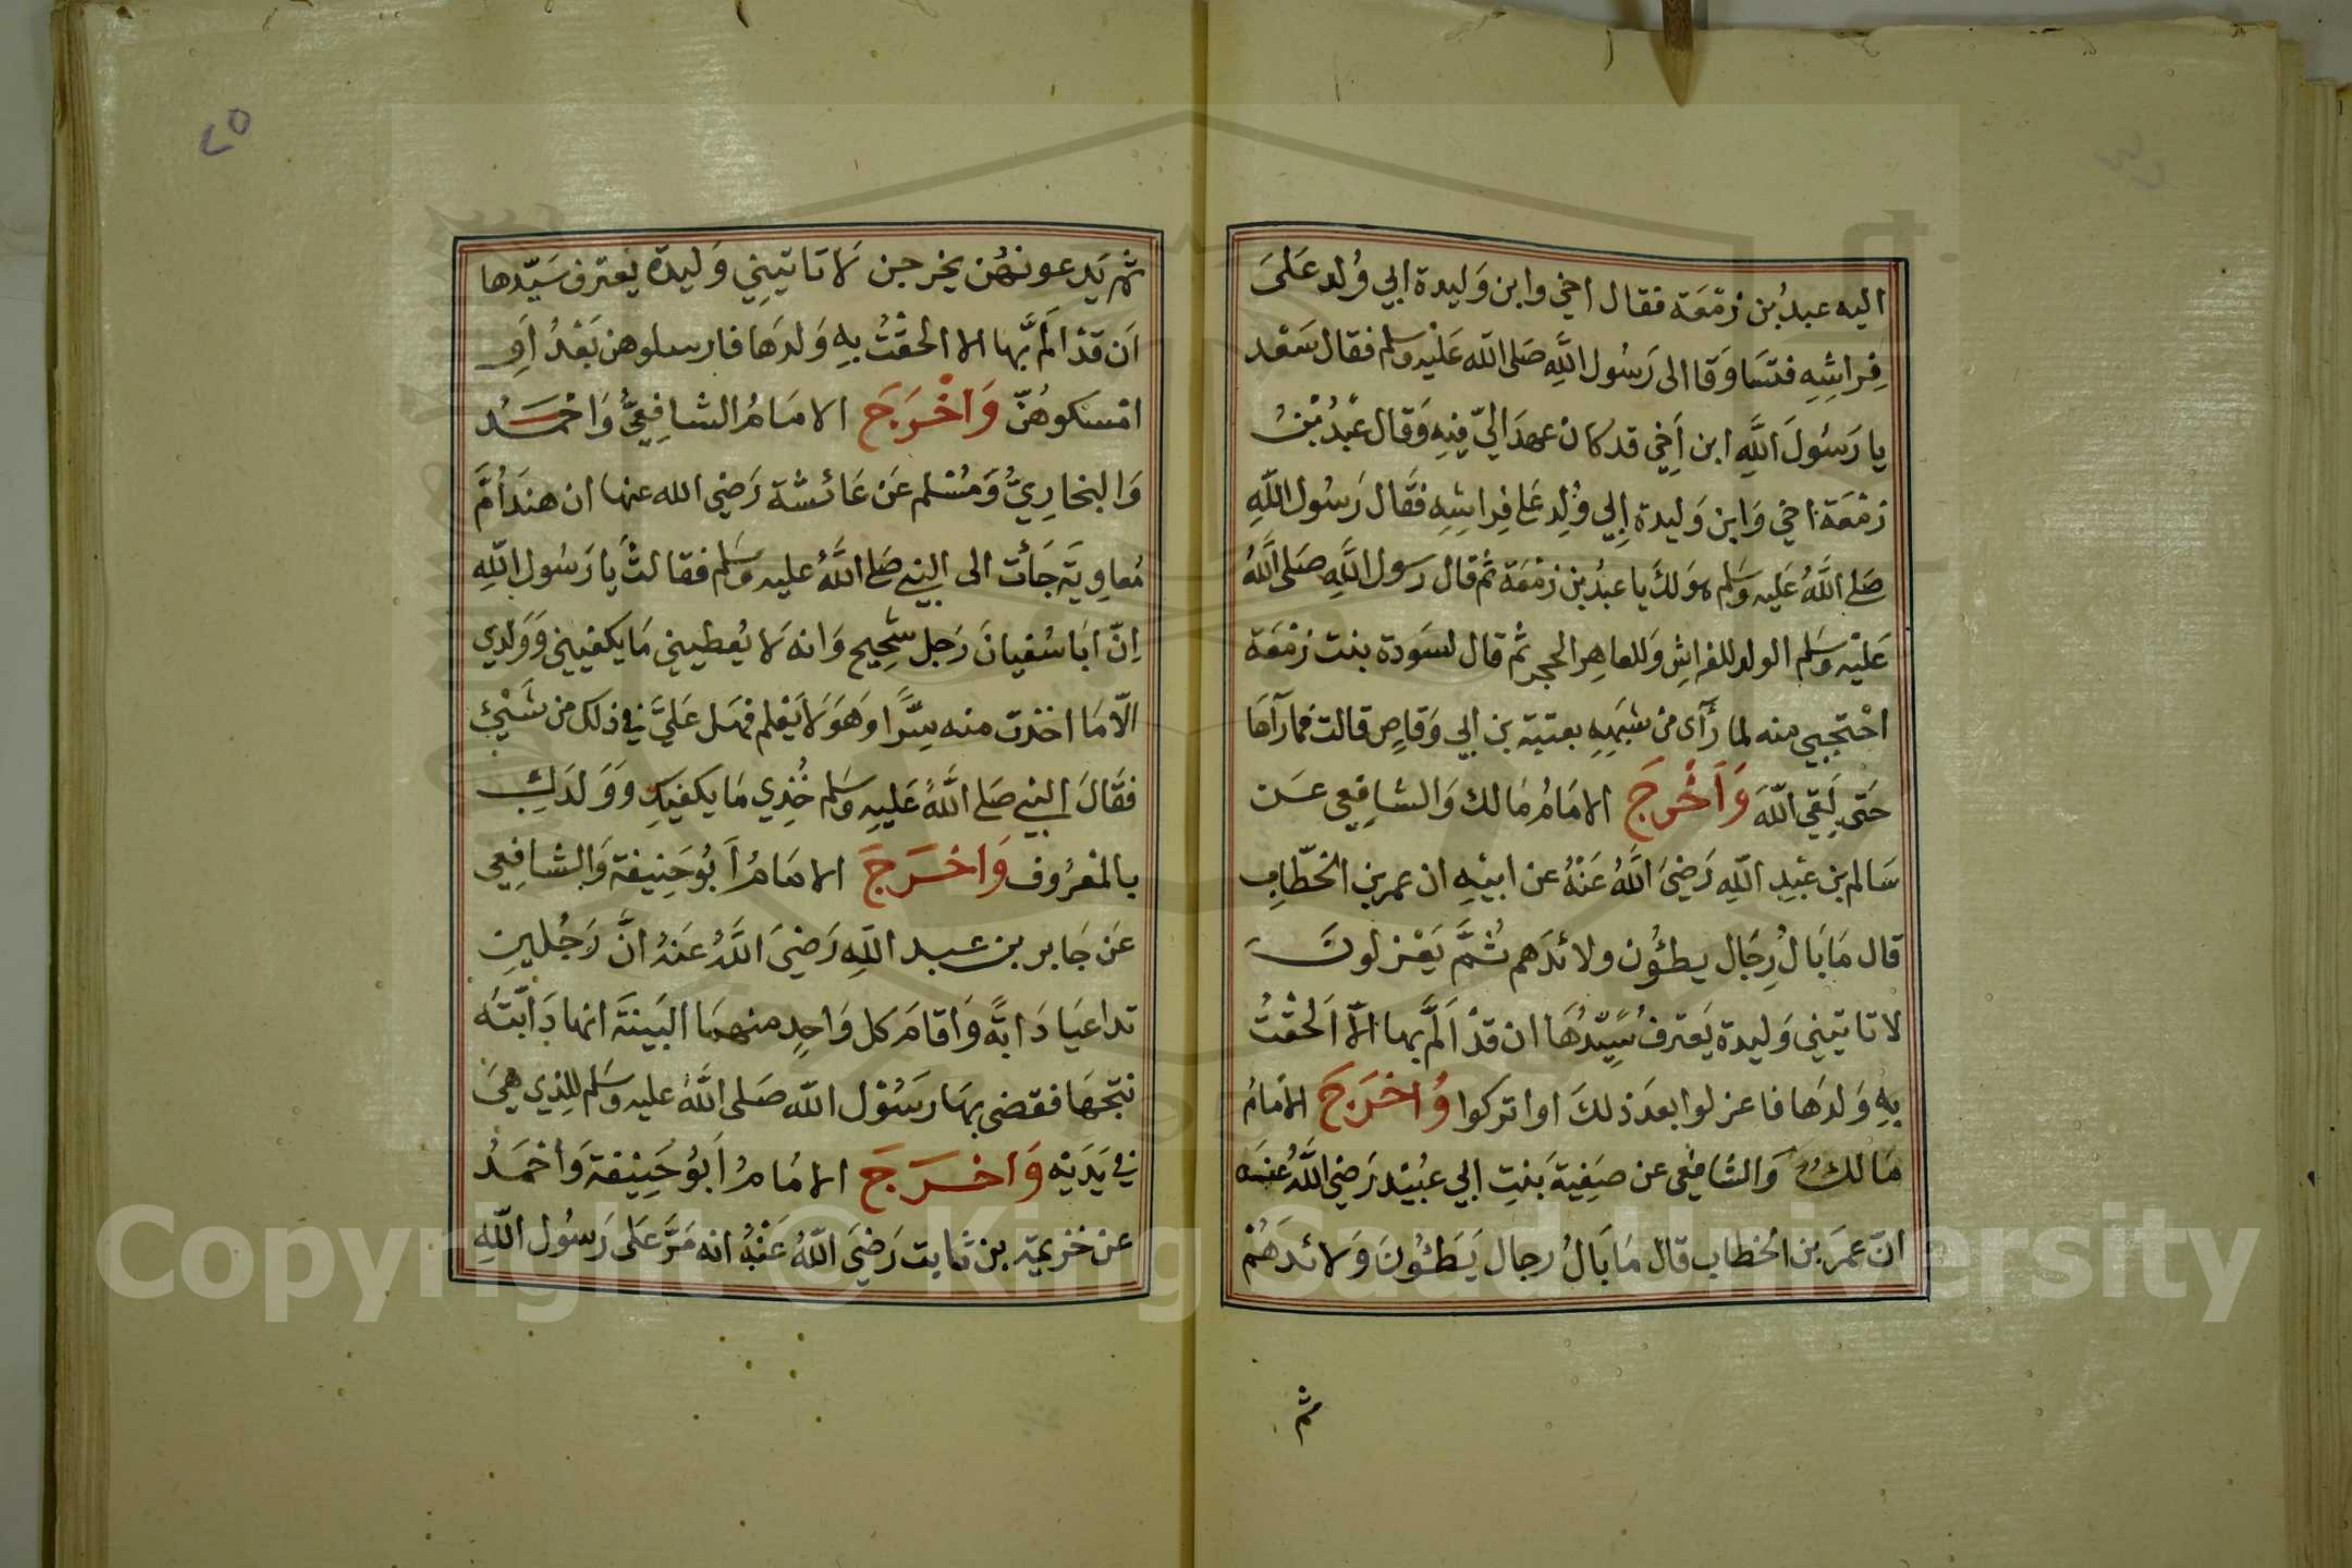 اليه عبدُ بن زمْعَة فقال اخي وابن وَليدة ابي وُلد عَلىَ
فِراشِهِ فتسَاوَقا الى رَسُول اللَّهِ صَلى الله عَليْه وسلم فقال سَعْد
يا رَسُولَ اللَّهِ ابن اَخِي قد كان عهدَ اليّ فِيهِ وَقال عَبْدُ بْنُ
زمْعَة اخي وَابن وَليدة اِبي وُلِدِ عَلى فِراشِهِ فقَال رَسُول اللَّهِ
صَلى اللَّهُ عَليه وسَلم هوَ لكَ يا عبدُ بن زمْعَة ثم قال رسول اللَّهِ صَلى اللَّهُ
عَليْه وسَلم الولد للفراشِ وَللعاهِر الحجر ثم قال لسَودة بنت زمْعَة
احْتجبي منه لما رَأى من شبَهِهِ بعتبة بن ابي وَقاصٍ قالت فما رَآهَا
حَتى لَقي اللّهَ وَاَخْرَجَ الامَامُ مَالك وَالشافِعي عَن
سَالم بن عَبدِ اللّهِ رَضيَ اللَّهُ عَنْهُ عن ابيْهِ ان عمر بن الخطّابِ
قال مَا بَالُ رِجَال يطئوُن ولائدَهم ثُمَّ يَعْزلونَ
لا تاتيني وَليدة يَعترفُ سَيّدُهَا ان قدْ اَلَمَّ بها الّا اَلحقْتُ
بِهِ وَلدَها فاعزلوا بعدَ ذلكَ اوا تركوا وُاخرَجَ الامَامُ
مَالكُ وَالشافعي عن صَفِيةَ بَنتِ ابي عبُيْد رَضيَ اللَّهُ عنهَ
انّ عمَرَ بن الخطاب قال مَا بَالُ رجال يَطئوُنَ وَلائدَهُمْ
ثم
٢٥
ثم يَدعونهُن يخرجن لَا تاتيني وَليدة يَعترف سَيّدها
اَن قدْ اَلمَّ بها الا الحقْتُ بِهِ وَلدَها فارسلوهن بَعْدُ اَوِ
امْسكوهُنّ وَاخْرَجَ الامَامُ الشافِعيُّ وَاحْمَدُ
وَالبخارِيُّ وَمُسْلم عَن عَائشة رَضي الله عنها ان هندَ اُمَّ
مُعاوِيَة جَأت الى النبي صَلى اللَّهُ عليه وسَلم فقالتْ يَا رَسُول اللَّهِ
اِنّ ابَا سُفيانَ رَجل شَحِيح وَانه لَا يُعطيني مَا يكفيني وَوَلدي
الّا مَا اخذت منه سِرًّا وَهوَ لَا يَعْلم فهَل عَليَّ في ذلك من شَيْئٍ
فقَالَ النبي صَلى اللَّهُ عَليهِ وسَلم خُذِي مَا يكفيَكِ وَوَلدَكِ
بالمعْرُوف وَاخرَجَ الامَامُ اَبُو حَنِيفة وَالشافِعي
عَن جَابر بن عبد اللَّهِ رَضيَ اللَّهُ عَنهُ انَّ رَجُلينِ
تداعيَا دَابةً وَاَقامَ كل وَاحِدٍ منهمَا البَينةَ انها دَابّتَه
نتجهَا فقضى بهَا رَسُوْل اللّه صَلى اللَّهُ عليه وسَلم للذِي هيَ
في يَدَيْه وَاخْرَجَ الامَامُ اَبُو حَنِيْفة وَاحْمَدُ
عن خزيمَة بن ثابت رَضيَ اللّهُ عَنْهُ انه مَرَّ عَلى رَسُول اللّهِ
Copyright © King Saud University